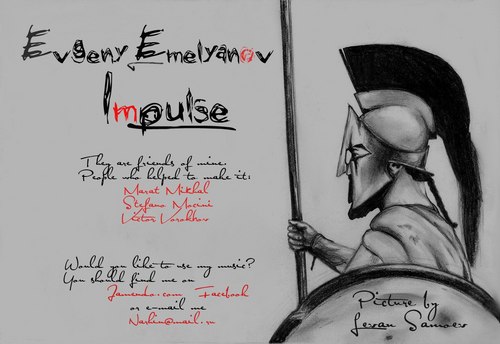 Evgeny Emelyanov
Impulse
They are friends of mine.
People who helped to make it:
Marat Mikhal
Stefano Mocini
Victor Vorokhov
Would you like to use my music?
You should find me on
Jamendo.com Facebook
or e-mail me
Narhin@mail.ru
Picture by
Levan Samoev